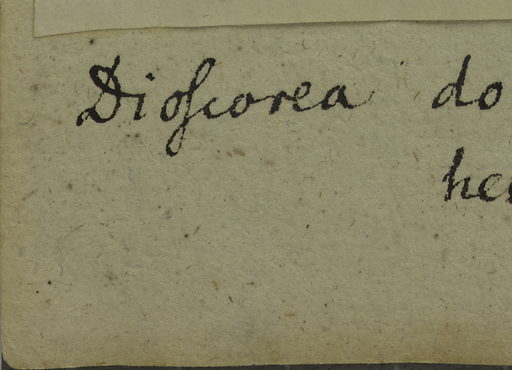 Dioſcorea do
he